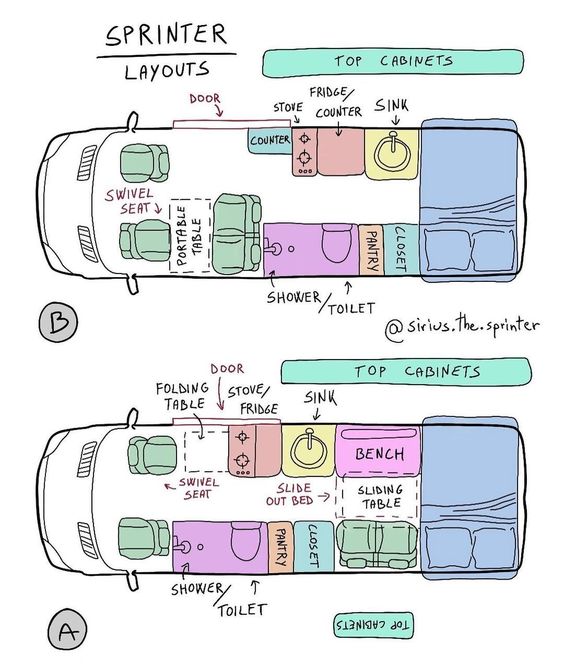 SPRINTER
LAYOUTS
TOP CABINETS
DOOR
STOVE
FRIDGE/
COUNTER
SINK
COUNTER
SWIVEL
SEAT
PORTABLE
TABLE
PANTRY
CLOSET
SHOWER/
TOILET
B
@sirius.the.sprinter
DOOR
TOP CABINETS
FOLDING
TABLE
STOVE/
FRIDGE
SINK
BENCH
SWIVEL
SEAT
SLIDE
OUT BED
SLIDING
TABLE
PANTRY
CLOSET
SHOWER/
TOILET
A
TOP CABINETS